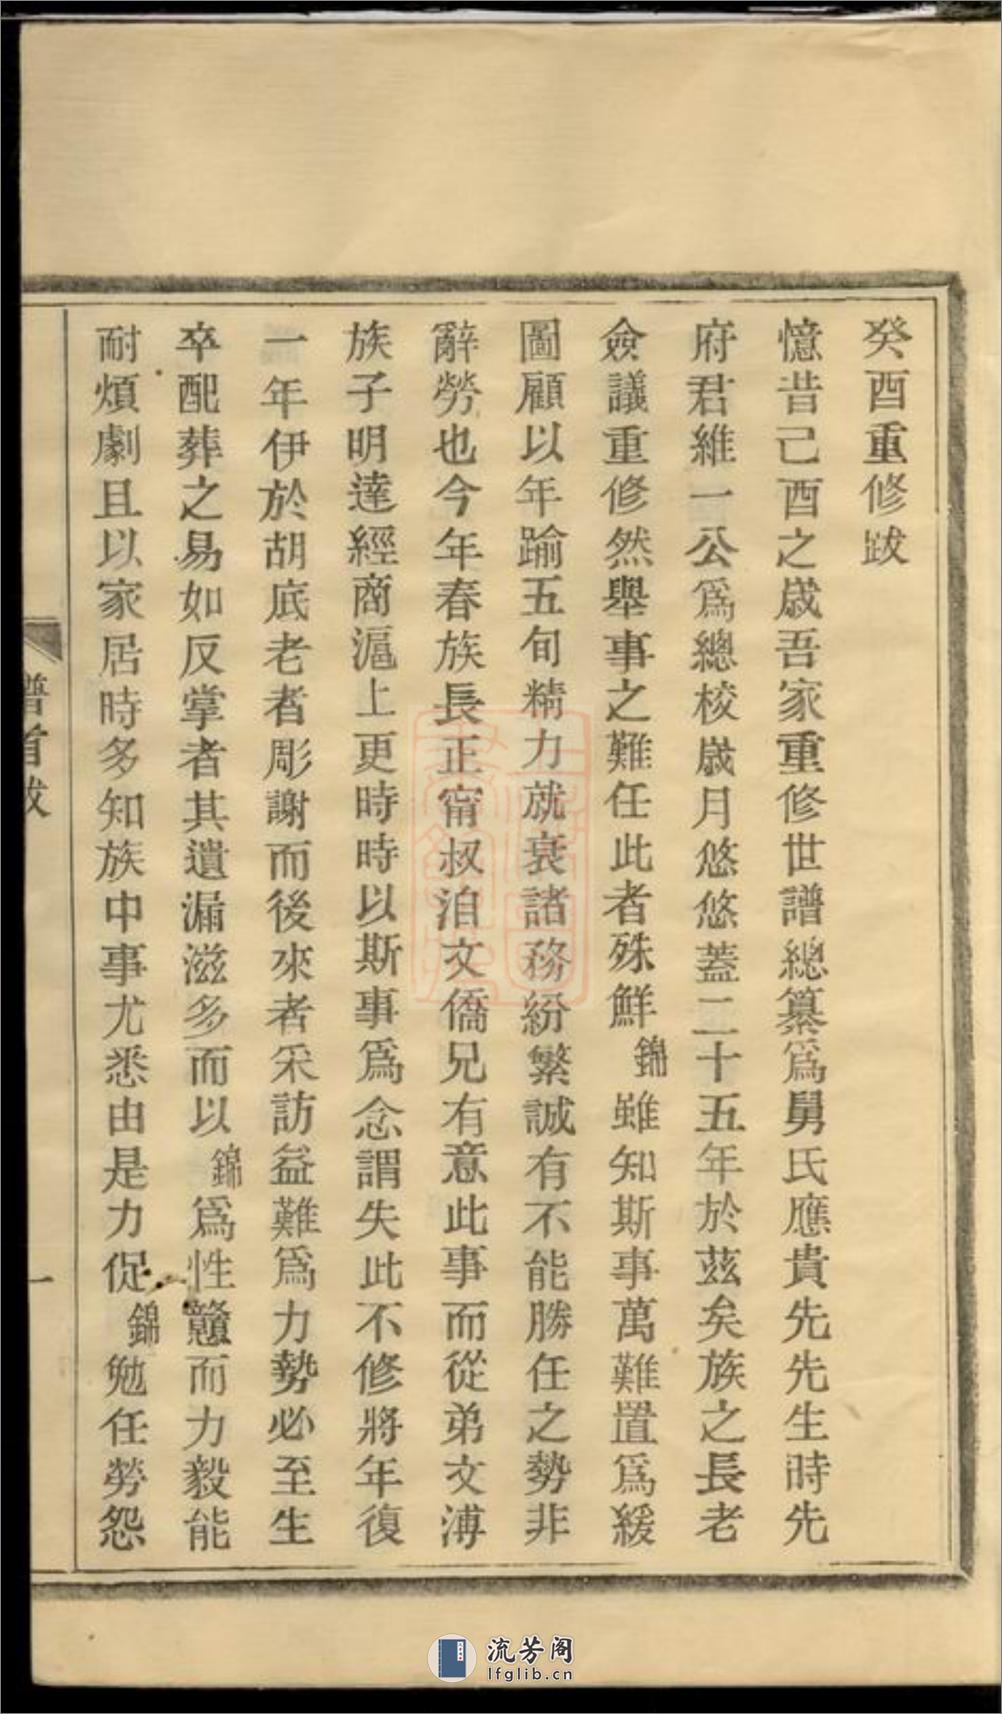 癸酉重修跋
憶昔己酉之歲吾家重修世譜總纂爲舅氏應貴先先生時先
府君維一公爲總校歲月悠悠蓋二十五年於茲矣族之長老
僉議重修然舉事之難任此者殊鮮錦雖知斯事萬難置爲緩
圖顧以年踰五旬精力就衰諸務紛繁誠有不能勝任之勢非
辭勞也今年春族長正甯叔洎文僑兄有意此事而從弟文溥
族子明達經商滬上更時時以斯事爲念謂失此不修將年復
一年伊於胡底老者彫謝而後來者采訪益難爲力勢必至生
卒配葬之易如反掌者其遺漏滋多而以錦爲性戇而力毅能
耐煩劇且以家居時多知族中事尤悉由是力促錦勉任勞怨
譜首跋
一
流芳阁
lfglib.cn